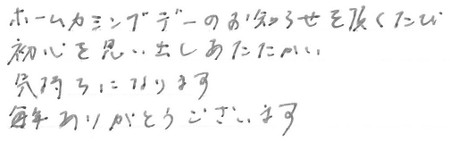 ホームカミングデーのお知らせを頂くたび
初心を思い出しあたたかい
気持ちになります
毎年ありがとうございます